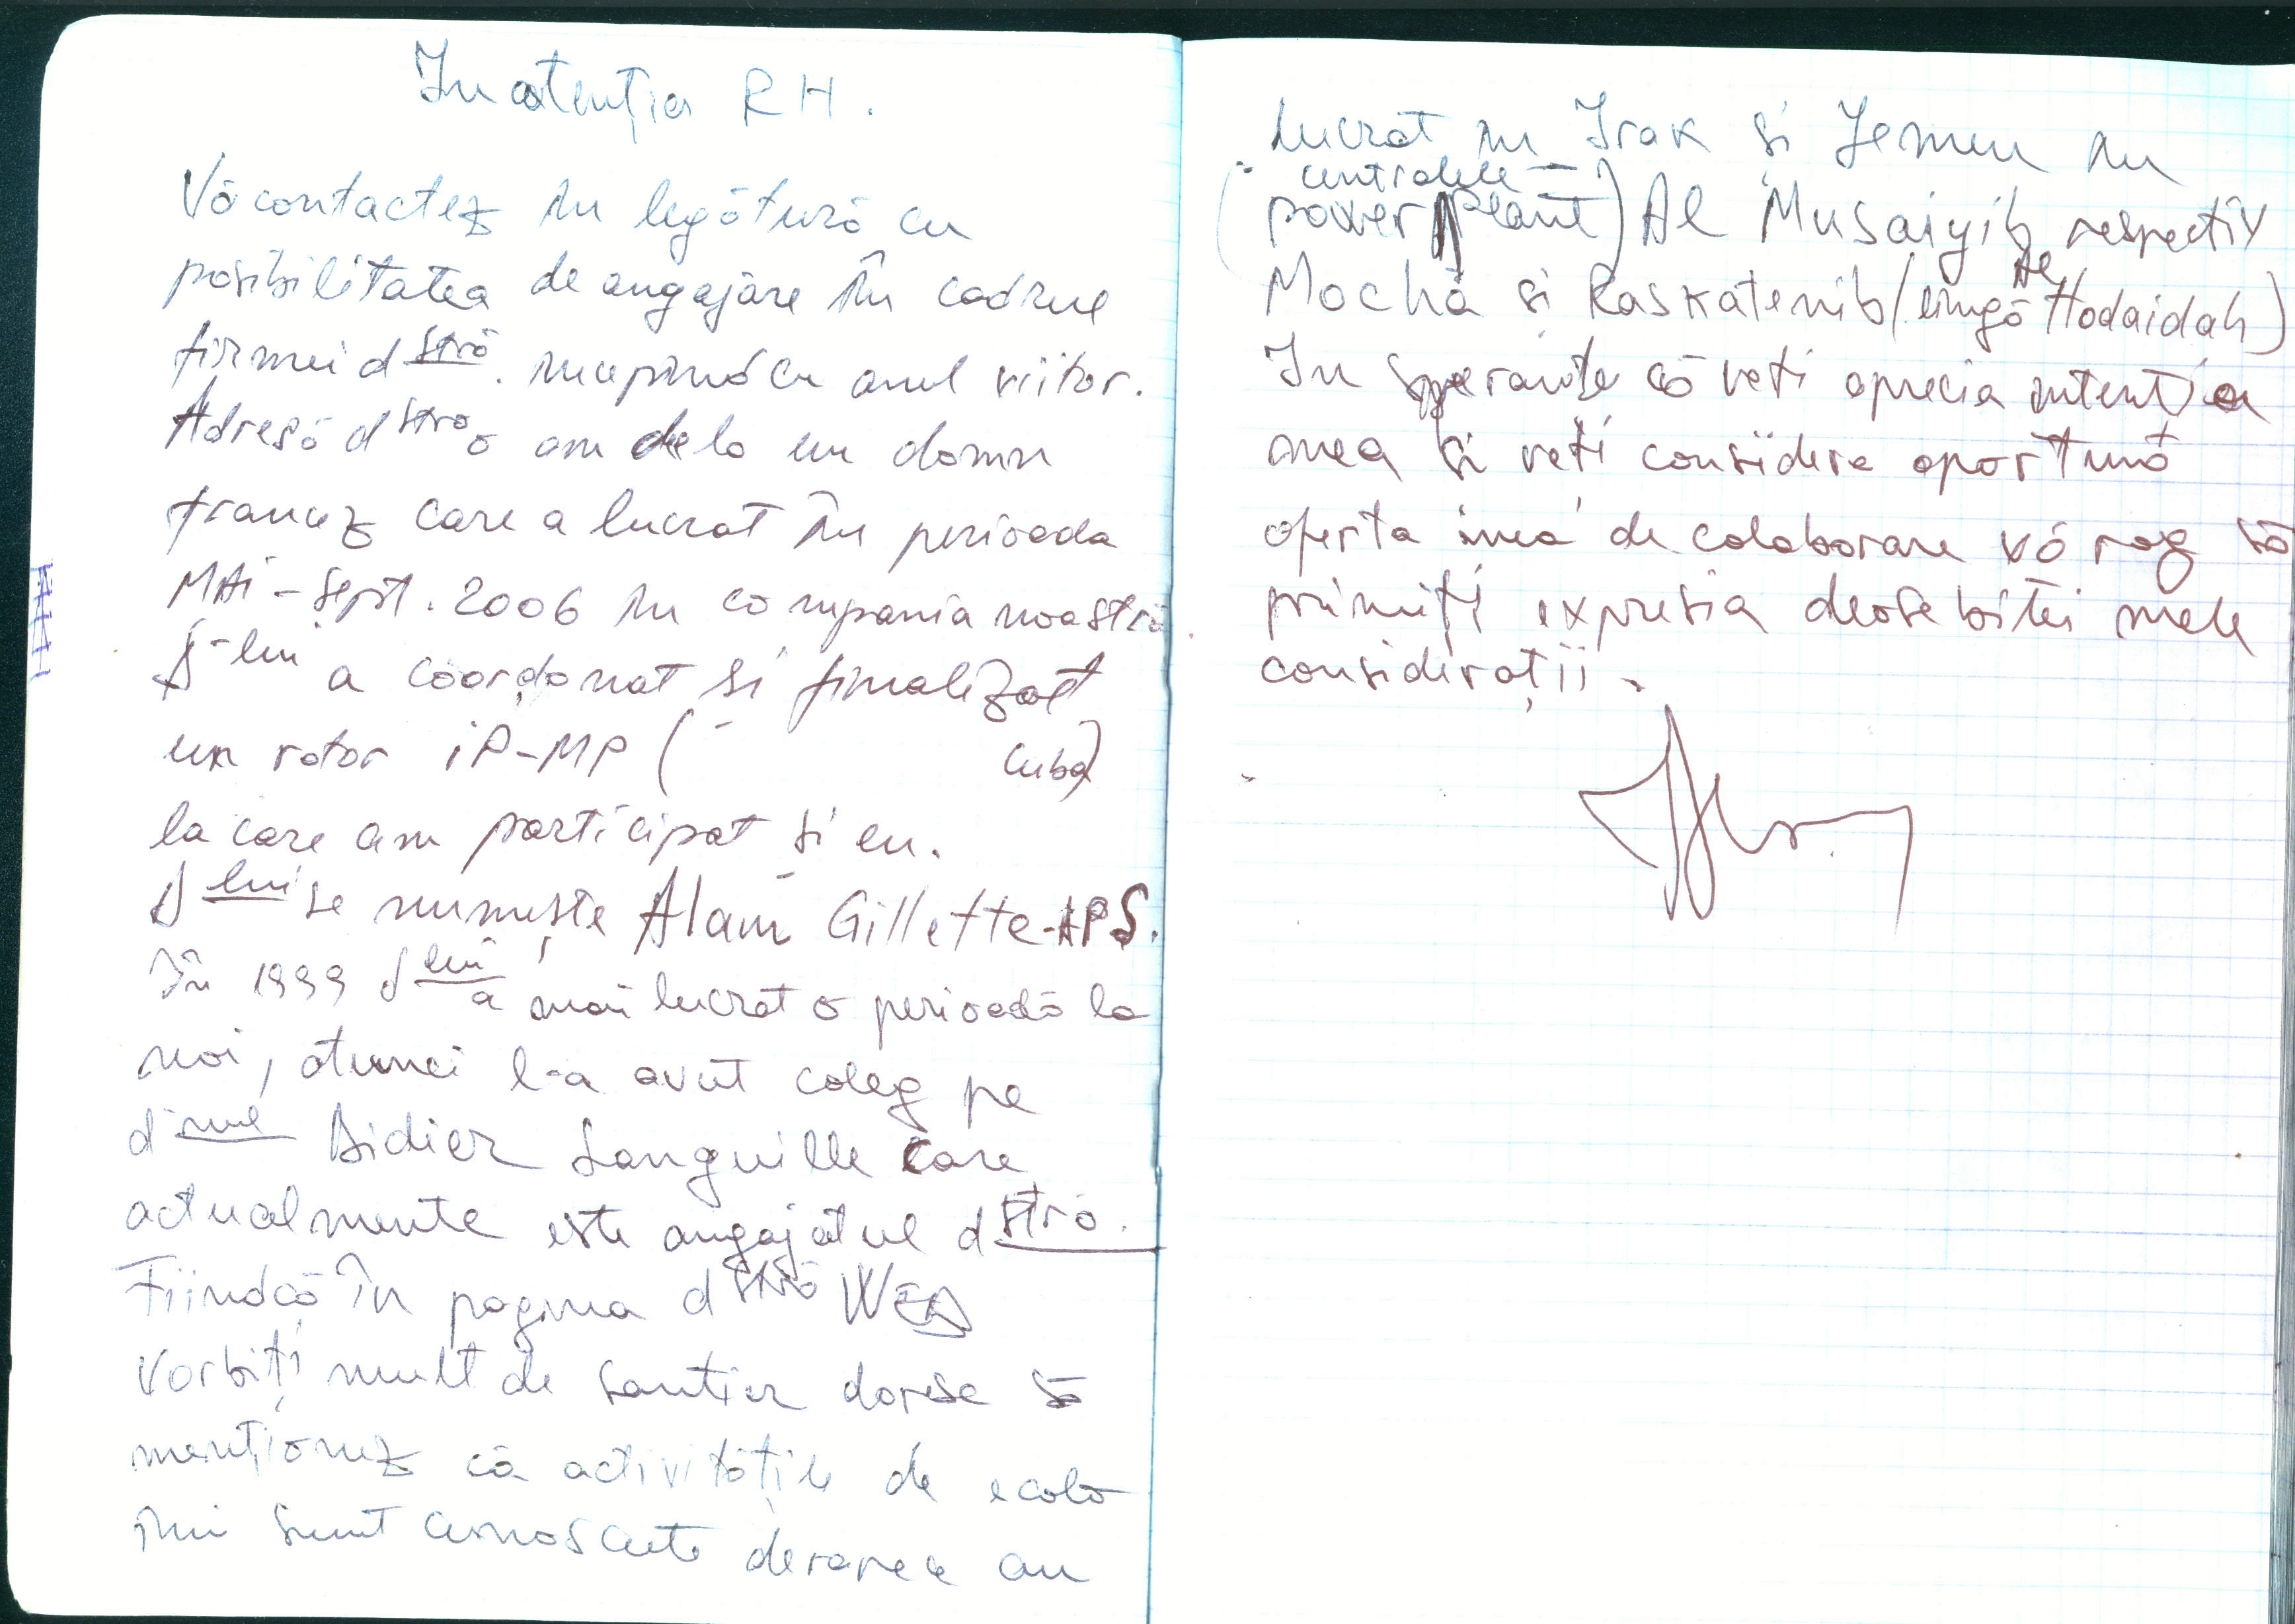 In atenția RH.
Vă contactez în legătură cu
posibilitatea de angajare în cadrul
firmei dstră. începînd cu anul viitor.
Adresă dstră o am dela un domn
francez care a lucrat în perioada
MAi-Sept. 2006 în compania noastră.
D-lui a coordonat si finalizat
un rotor iP-MP ( Cuba)
la care am participat si eu.
D lui se numește Alain Gillette-APS.
În 1999 d lui a mai lucrat o perioadă la
noi, atunci l-a avut coleg pe
d-nul Didier Languille care
actualmente este angajatul dstră.
Fiindcă în pagina dstră WEB
vorbiți mult de santier doresc să
menționez că activitățile de acolo
îmi sunt cunoscute deoarece am
lucrat în Irak și Jemen în
centralele
(power plant) Al Musaiyib respectiv
Mocha si Raskatenib (lîngă Al Hodaidah)
In speranța că veți aprecia intenția
mea si veți considera oportună
oferta mea de colaborare vă rog să
primiți expresia deosebitei mele
considerații.